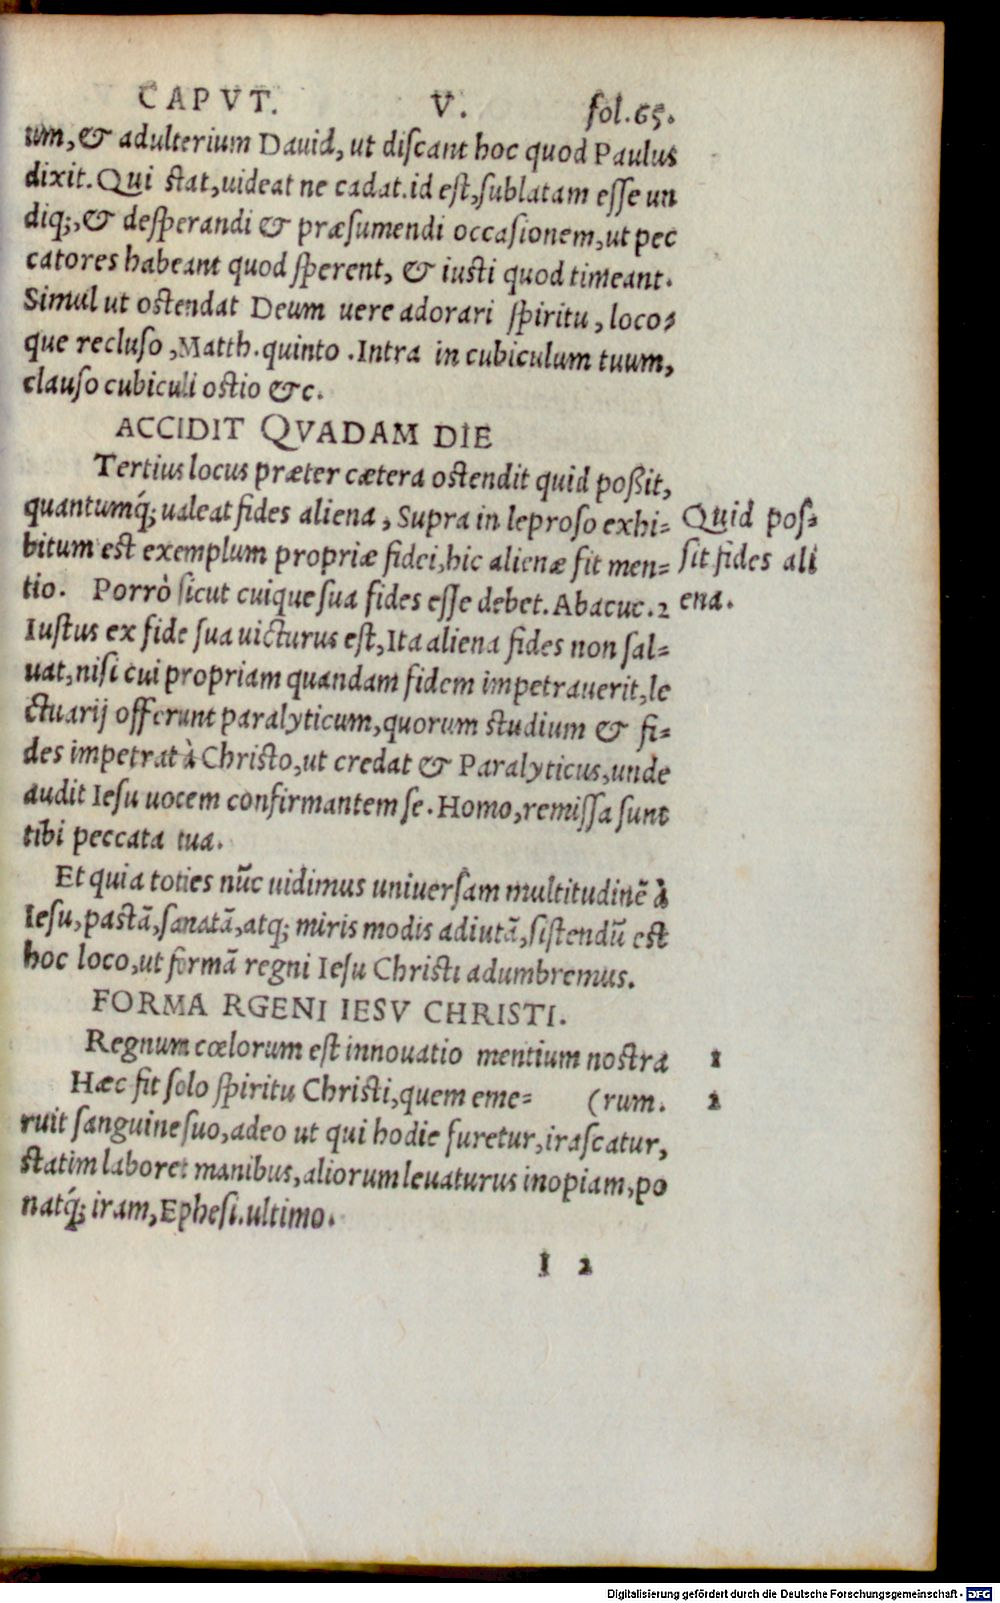 CAPVT. V. fol.65.
um,& adulterium Dauid, ut discant hoc quod Paulus
dixit. Qui stat,uideat ne cadat.id est,sublatam esse un
diq;,& desperandi & præsumendi occasionem,ut pec
catores habeant quod sperent, & iusti quod timeant.
Simul ut ostendat Deum uere adorari spiritu, loco⸗
que recluso,Matth.quinto.Intra in cubiculum tuum,
clauso cubiculi ostio &c.
ACCIDIT QVADAM DIE
Tertius locus præter cætera ostendit quid poßit,
quantumq́; ualeat fides aliena, Supra in leproso exhi⸗
bitum est exemplum propriæ fidei,hic alienæ fit men⸗
tio. Porrò sicut cuique sua fides esse debet. Abacuc.2
Iustus ex fide sua uicturus est,Ita aliena fides non sal⸗
uat,nisi cui propriam quandam fidem impetrauerit,le
ctuarij offerunt paralyticum,quorum studium & fi⸗
des impetrat à Christo,ut credat & Paralyticus,unde
audit Iesu uocem confirmantem se. Homo,remissa sunt
tibi peccata tua.
Quid pos⸗
sit fides ali
ena.
Et quia toties nũc uidimus uniuersam multitudinẽ à
Iesu,pastã,sanatã,atq; miris modis adiutã,sistendũ est
hoc loco,ut formã regni Iesu Christi adumbremus.
FORMA RGENI IESV CHRISTI.
Regnum cœlorum est innouatio mentium nostra 1
Hæc fit solo spiritu Christi,quem eme⸗ (rum. 2
ruit sanguine suo,adeo ut qui hodie furetur,irascatur,
statim laboret manibus,aliorum leuaturus inopiam,po
natq́; iram,Ephesi.ultimo.
I 2
Digitalisierung gefördert durch die Deutsche Forschungsgemeinschaft - DFG